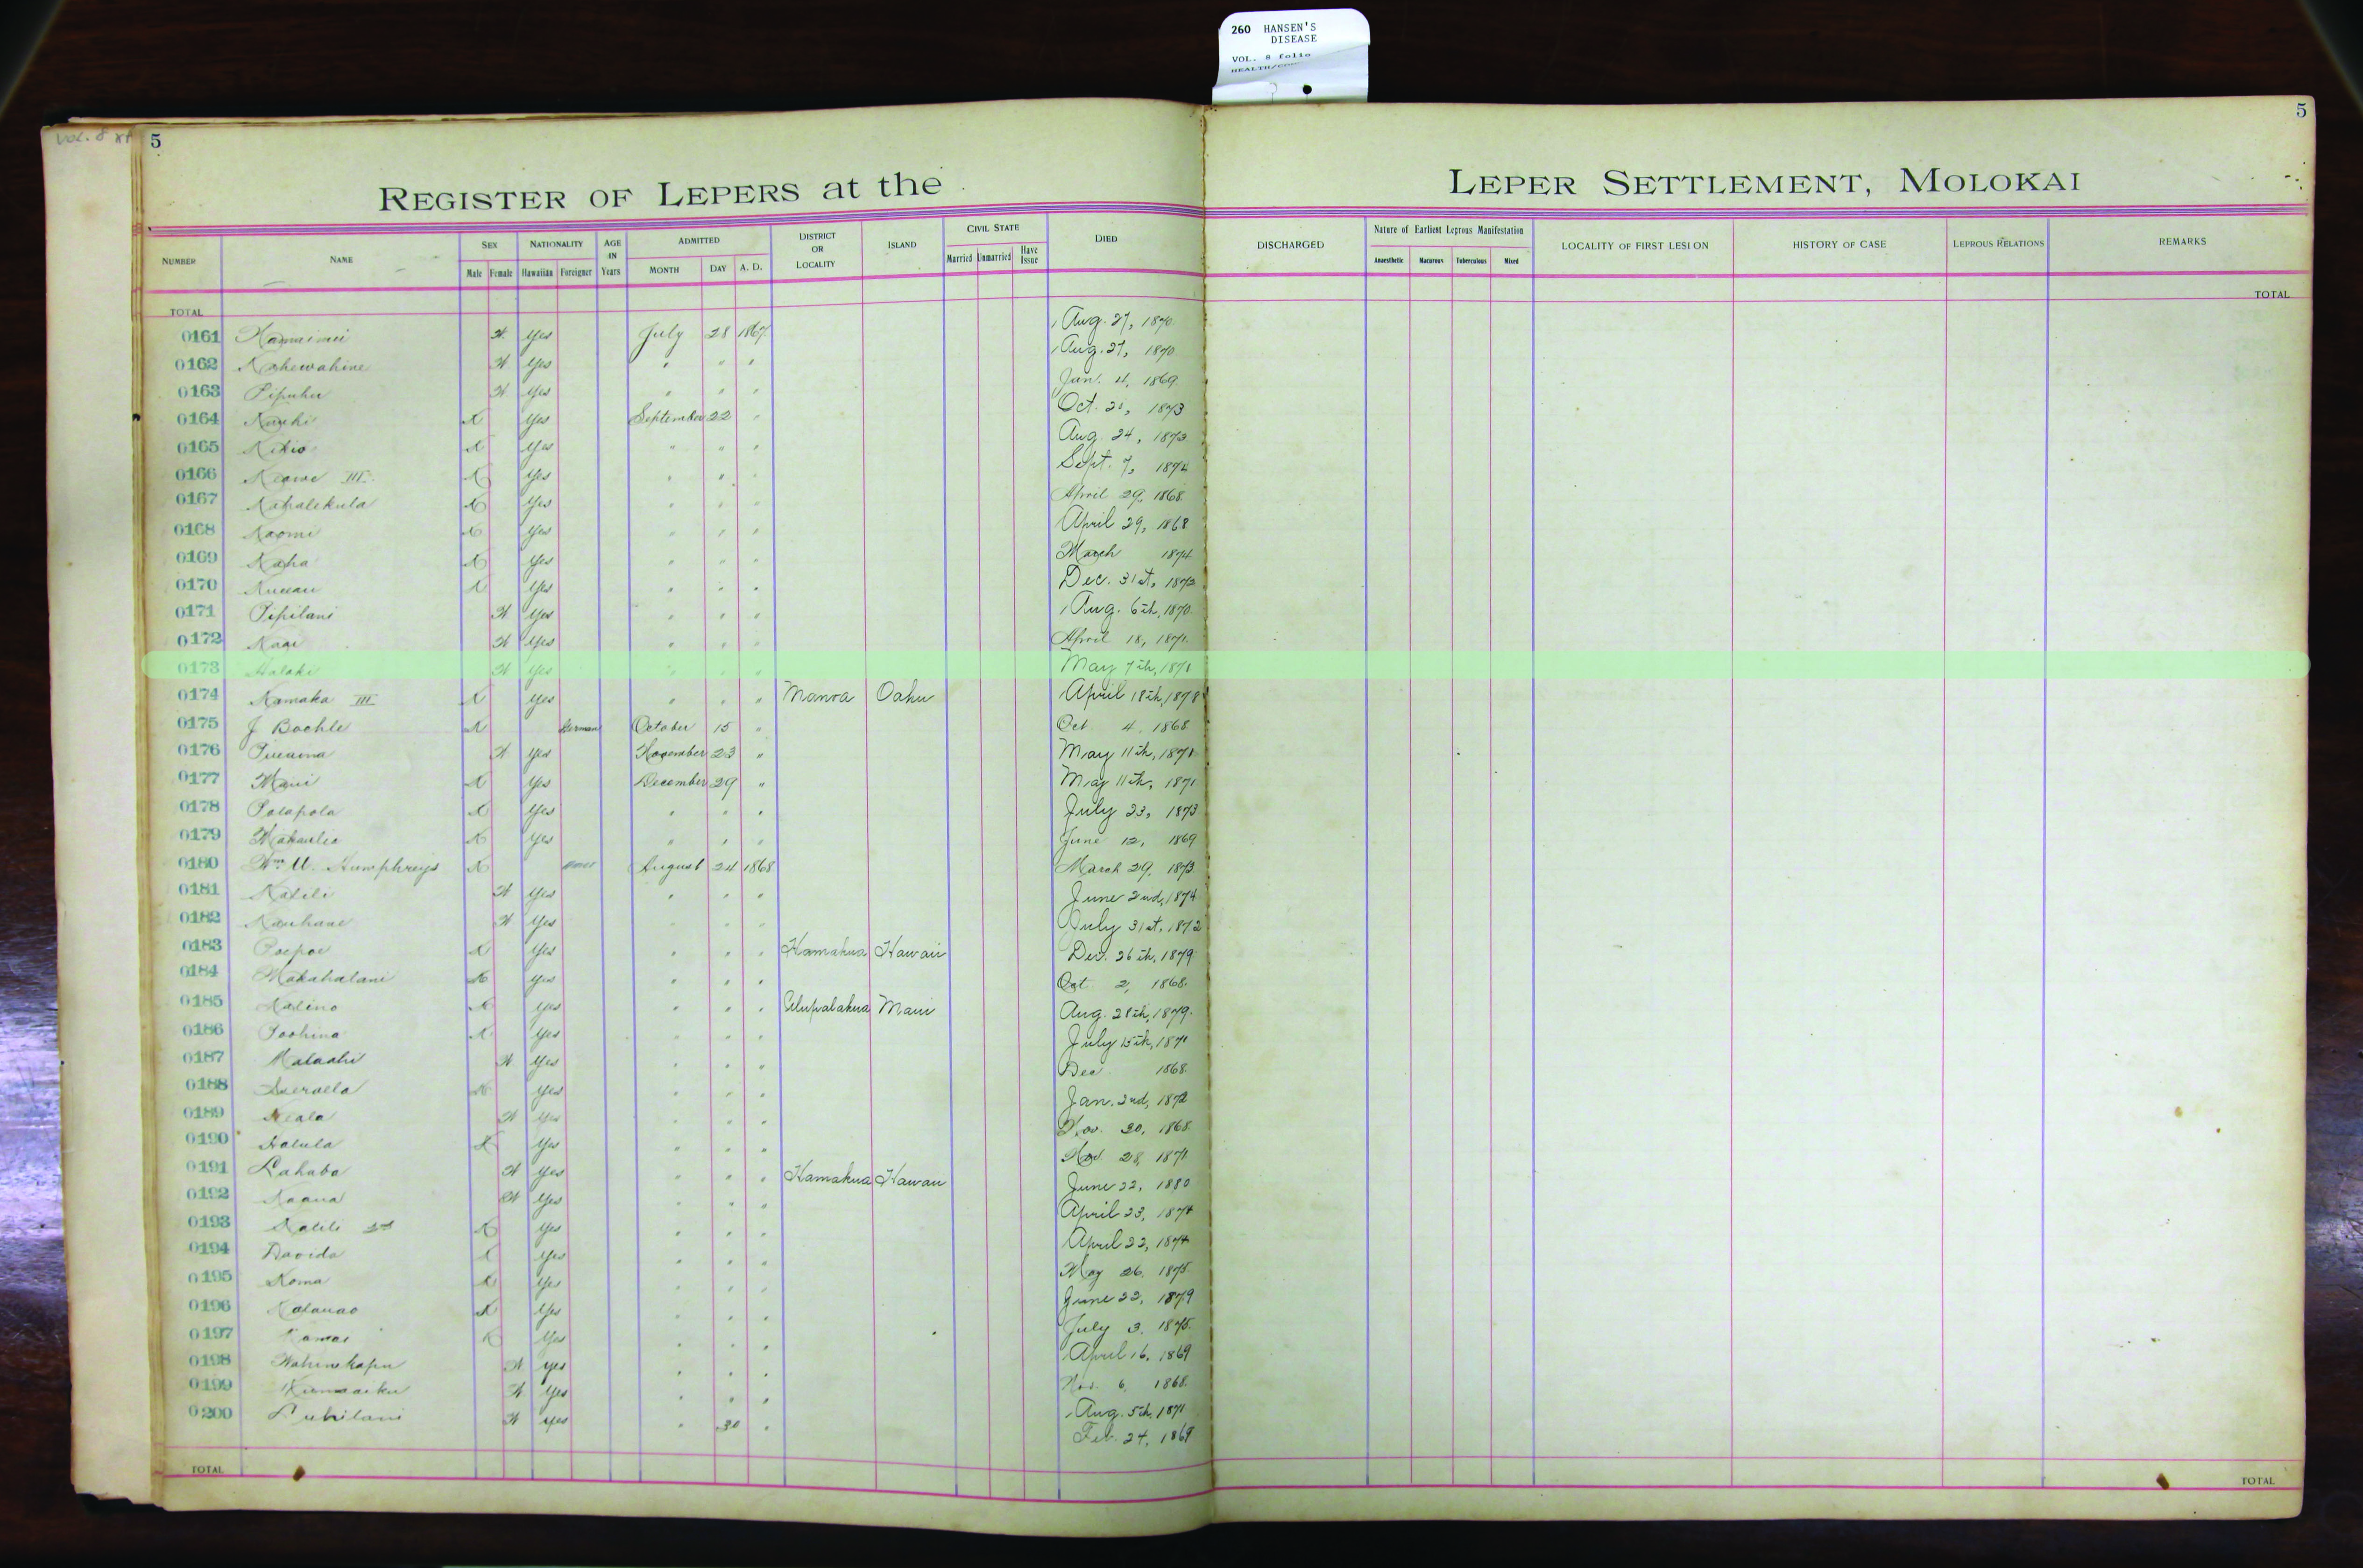 260 HANSEN'S
DISEASE
VOL. 8 folio
VOL. 8
5
5
REGISTER OF LEPERS at the LEPER SETTLEMENT, MOLOKAI
NUMBER NAME SEX Male Female NATIONALITY Hawaiian Foreigner AGE IN Years ADMITTED MONTH DAY A. D. DISTRICT OR LOCALITY ISLAND CIVIL STATE Married Unmarried Have Issue DIED DISCHARGED Nature of Earliest Leprous Manifestation Anaesthetic Macurous Tuberculous Mixed LOCALITY OF FIRST LESION HISTORY OF CASE LEPROUS RELATIONS REMARKS
TOTAL TOTAL
0161 yes July 28 1867 Aug. 27, 1870
0162 Kahewahine yes " " " Aug. 27, 1870
0163 Pipuhu yes " " " Jan. 4, 1869
0164 yes September 22 " Oct. 1873
0165 Kikio yes " " " Aug. 24, 1873
0166 Keawe III yes " " " Sept. 7, 1874
0167 Kahalekula yes " " " April 29, 1868
0168 Naomi yes " " " April 29, 1868
0169 Kaha yes " " " March 1874
0170 yes " " " Dec. 31st, 1873
0171 Pipilani yes " " " Aug. 6th, 1870
0172 yes " " " April 18, 1871
0173 Haloki yes " " " May 7th, 1871
0174 Kamaka III yes " " " Manoa Oahu April 18th, 1878
0175 J Boehle German October 15 " Oct 4, 1868
0176 yes November 23 " May 11th, 1871
0177 Maui yes December 29 " May 11th, 1871
0178 Polapola yes " " " July 23, 1873
0179 yes " " " June 12, 1869
0180 Wm. Humphreys August 24 1868 March 29, 1873
0181 Kalili yes " " " June 2nd, 1874
0182 Kauhane yes " " " July 31st, 1872
0183 Poepoe yes " " " Hamakua Hawaii Dec. 26th, 1879
0184 Makahalani yes " " " Oct 2, 1868
0185 Kalino yes " " " Ulupalakua Maui Aug. 28th, 1879
0186 Poohina yes " " " July 15th, 1871
0187 yes " " " Dec 1868
0188 yes " " " Jan. 2nd, 1872
0189 Keala yes " " " Nov. 30, 1868
0190 Halula yes " " " Nov. 28, 1871
0191 Lahaba yes " " " Hamakua Hawaii June 22, 1880
0192 Kaaua yes " " " April 23, 1874
0193 Kalili yes " " " April 22, 1874
0194 Davida yes " " " May 26, 1875
0195 Koma yes " " " June 22, 1879
0196 Kalauao yes " " " July 3, 1875
0197 Kamai yes " " " April 16, 1869
0198 Wahinekapu yes " " " Nov. 6, 1868
0199 yes " " " Aug. 5th, 1871
0200 yes " 30 " Feb. 24, 1869
TOTAL TOTAL